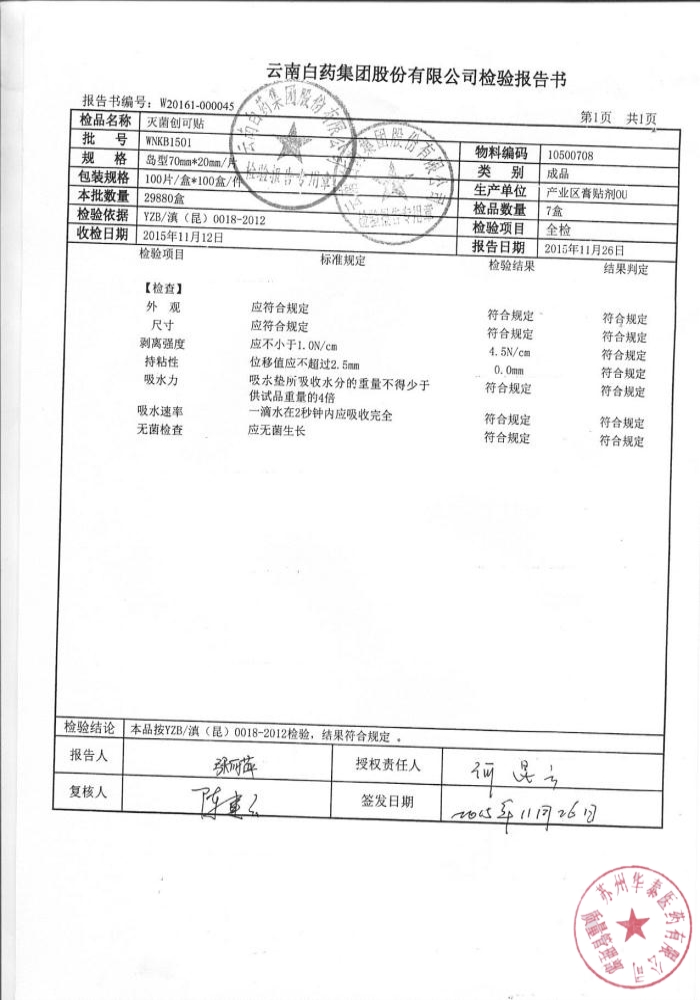 云南白药集团股份有限公司检验报告书
报告书编号：W20161-000045
第1页 共1页
检品名称 灭菌创可贴
批 号 WNKB1501
物料编码 10500708
规 格 岛型70mm*20mm/片
类 别 成品
包装规格 100片/盒*100盒/件
生产单位 产业区膏贴剂OU
本批数量 29880盒
检品数量 7盒
检验依据 YZB/滇（昆）0018-2012
检验项目 全检
收检日期 2015年11月12日
报告日期 2015年11月26日
检验项目 标准规定 检验结果 结果判定
【检查】
外 观 应符合规定 符合规定 符合规定
尺寸 应符合规定 符合规定 符合规定
剥离强度 应不小于1.0N/cm 4.5N/cm 符合规定
持粘性 位移值应不超过2.5mm 0.0mm 符合规定
吸水力 吸水垫所吸收水分的重量不得少于 符合规定 符合规定
供试品重量的4倍
吸水速率 一滴水在2秒钟内应吸收完全 符合规定 符合规定
无菌检查 应无菌生长 符合规定 符合规定
检验结论 本品按YZB/滇（昆）0018-2012检验，结果符合规定 。
报告人 授权责任人
复核人 签发日期 2015年11月26日
云南白药集团股份有限公司
检验报告专用章
集团股份有限公司
检验报告专用章
苏州华泰医药有限公司
质量管理部